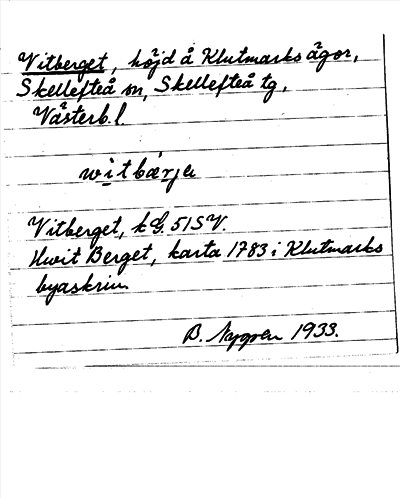 Vitberget, höjd å Klutmarks ägor,
Skellefteå sn, Skellefteå tg,
Västerb. l.
witbärje
Vitberget, kG. 51 SV.
Hwit Berget, karta 1783 i Klutmarks
byaskrin
B. Nygren 1933.